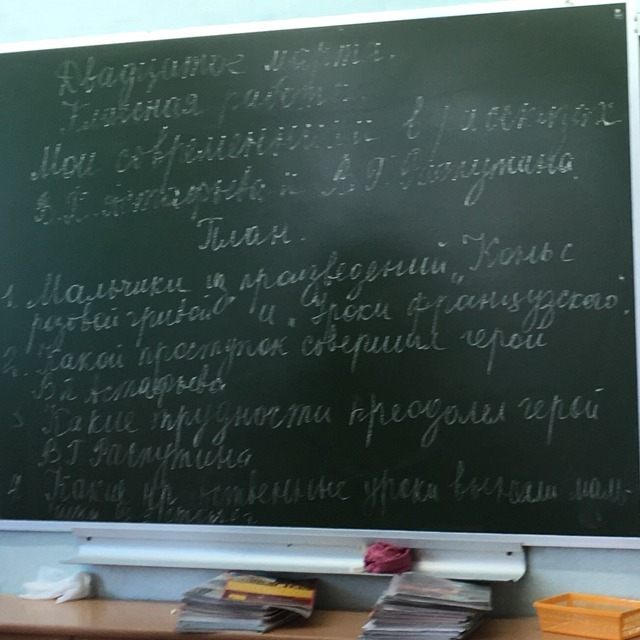 Двадцатое марта.
Классная работа.
Мои современники в рассказах
В.П. Астафьева и В.Г. Распутина.
План.
1. Мальчики из произведений "Конь с
розовой гривой" и "Уроки французского".
2. Какой проступок совершил герой
В.П. Астафьева
3. Какие трудности преодолел герой
В.Г. Распутина
4. Какие нравственные уроки вынесли маль-